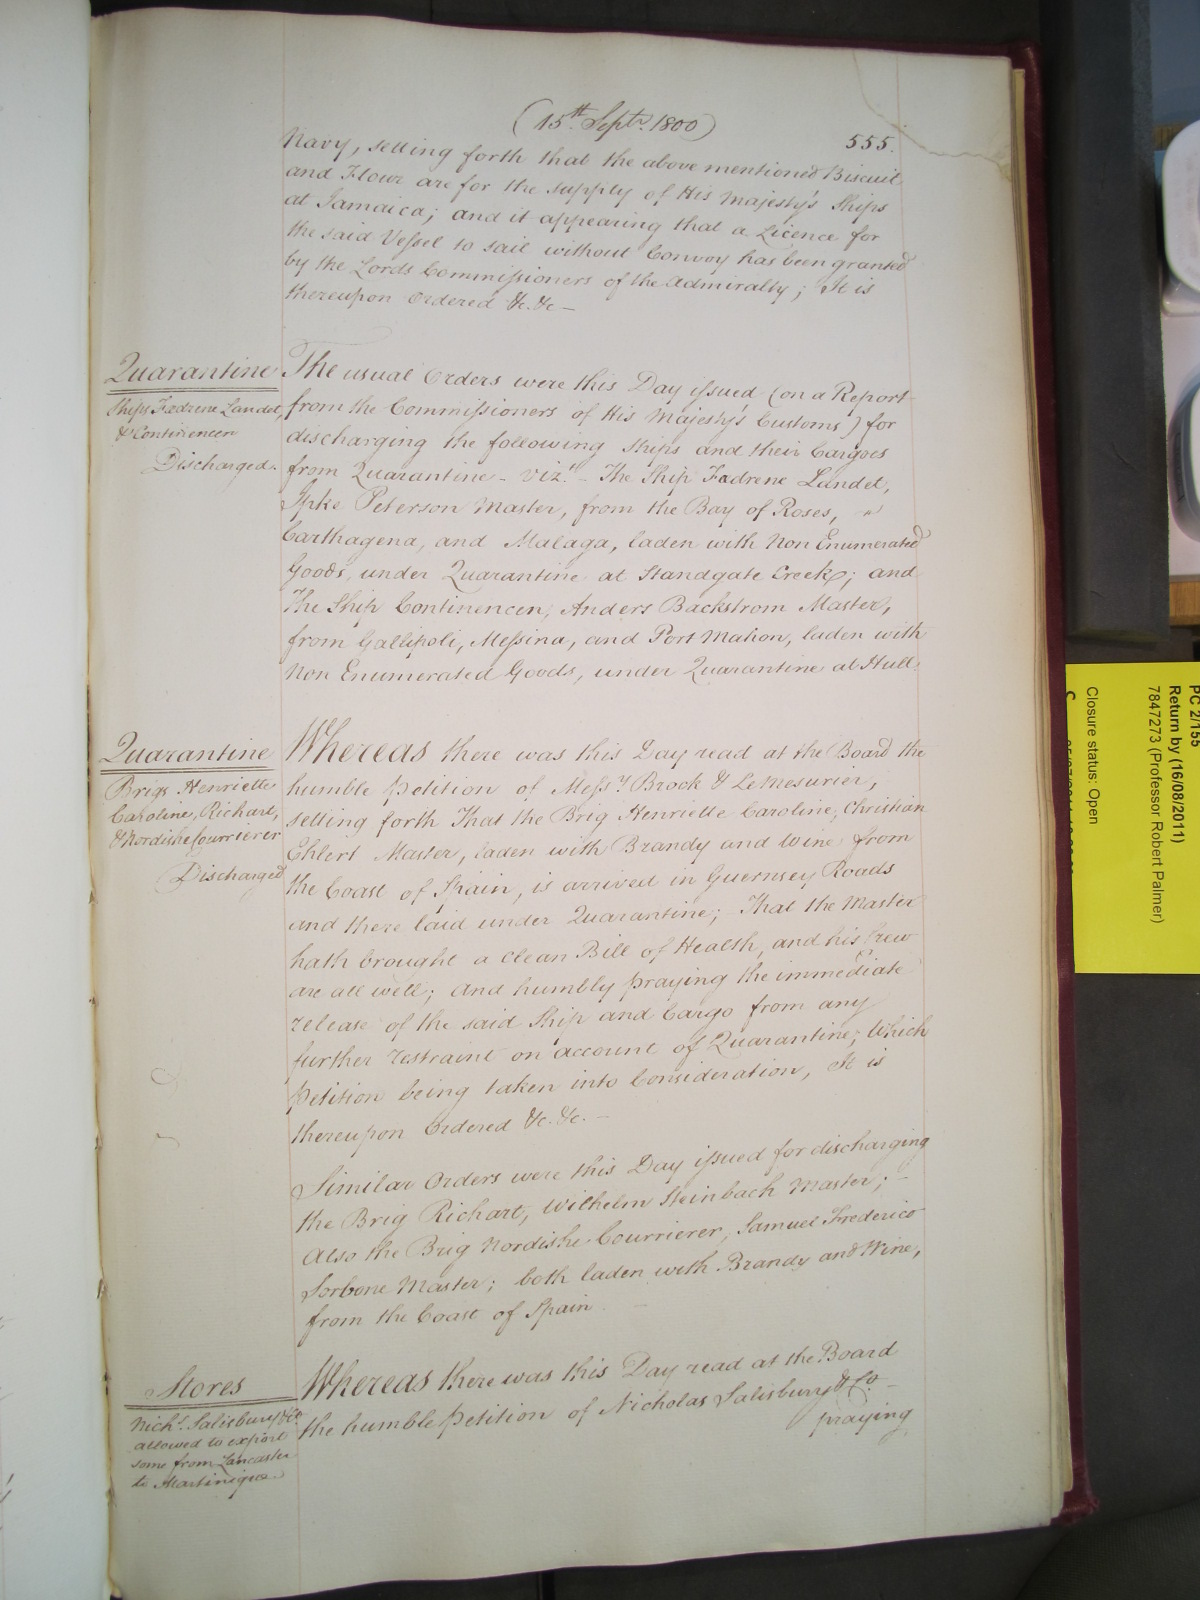 (15th. Septr. 1800)
555.
Navy, setting forth that the above mentioned Biscuit
and Flour are for the supply of His Majesty's Ships
at Jamaica; and it appearing that a Licence for
the said Vessel to sail without Convoy has been granted
by the Lords Commissioners of the Admiralty; It is
thereupon Ordered &c. &c—
Quarantine
Ships Fædrene Landet,
& Continencen
Discharged.
The usual Orders were this Day issued (on a Report
from the Commissioners of His Majesty's Customs) for
discharging the following Ships and their Cargoes
from Quarantine - vizt. - The Ship Fædrene Landet,
Ipke Peterson Master, from the Bay of Roses,
Carthagena, and Malaga, laden with Non Enumerated
Goods, under Quarantine at Standgate Creek; and
The Ship Continencen, Anders Backstrom Master,
from Gallipoli, Messina, and Port Mahon, laden with
Non Enumerated Goods, under Quarantine at Hull.
Quarantine
Brigs Henriette
Caroline, Richart,
& Nordishe Courrierer
Discharged
Whereas there was this Day read at the Board the
humble Petition of Messrs Brock & LeMesurier,
setting forth That the Brig Henriette Caroline, Christian
Ehlert Master, laden with Brandy and Wine from
the Coast of Spain, is arrived in Guernsey Roads
and there laid under Quarantine; That the Master
hath brought a clean Bill of Health, and his Crew
are all well; and humbly praying the immediate
release of the said Ship and Cargo from any
further restraint on account of Quarantine; Which
Petition being taken into Consideration, It is
thereupon Ordered &c. &c. —
Similar Orders were this Day issued for discharging
the Brig Richart, Wilhelm Steinbach Master; -
Also the Brig Nordishe Courrierer, Samuel Frederico
Sorbone Master; both laden with Brandy and Wine,
from the Coast of Spain.
Stores
Nichs. Salisbury & Co.
allowed to export
some from Lancaster
to Martinique.
Whereas there was this Day read at the Board
the humble Petition of Nicholas Salisbury & Co. -
praying
PC 2/155
Return by (16/08/2011)
7847273 (Professor Robert Palmer)
Closure status: Open